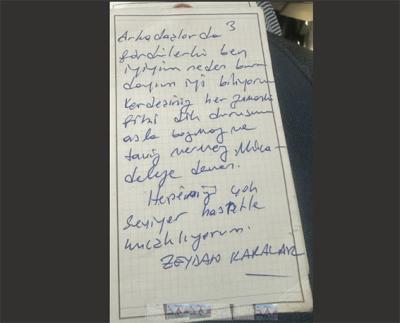 3
Arkadaşlarda
gördülerki ben
iyiyim neden bura
dayım iyi biliyorum
Kardeşiniz her zamanki
gibi dik duruşunu
asla bozmaz ve
taviz vermez Müca-
deleye devam.
Hepinizi çok
seviyor hasretle
kucaklıyorum.
ZEYDAN KARALAR